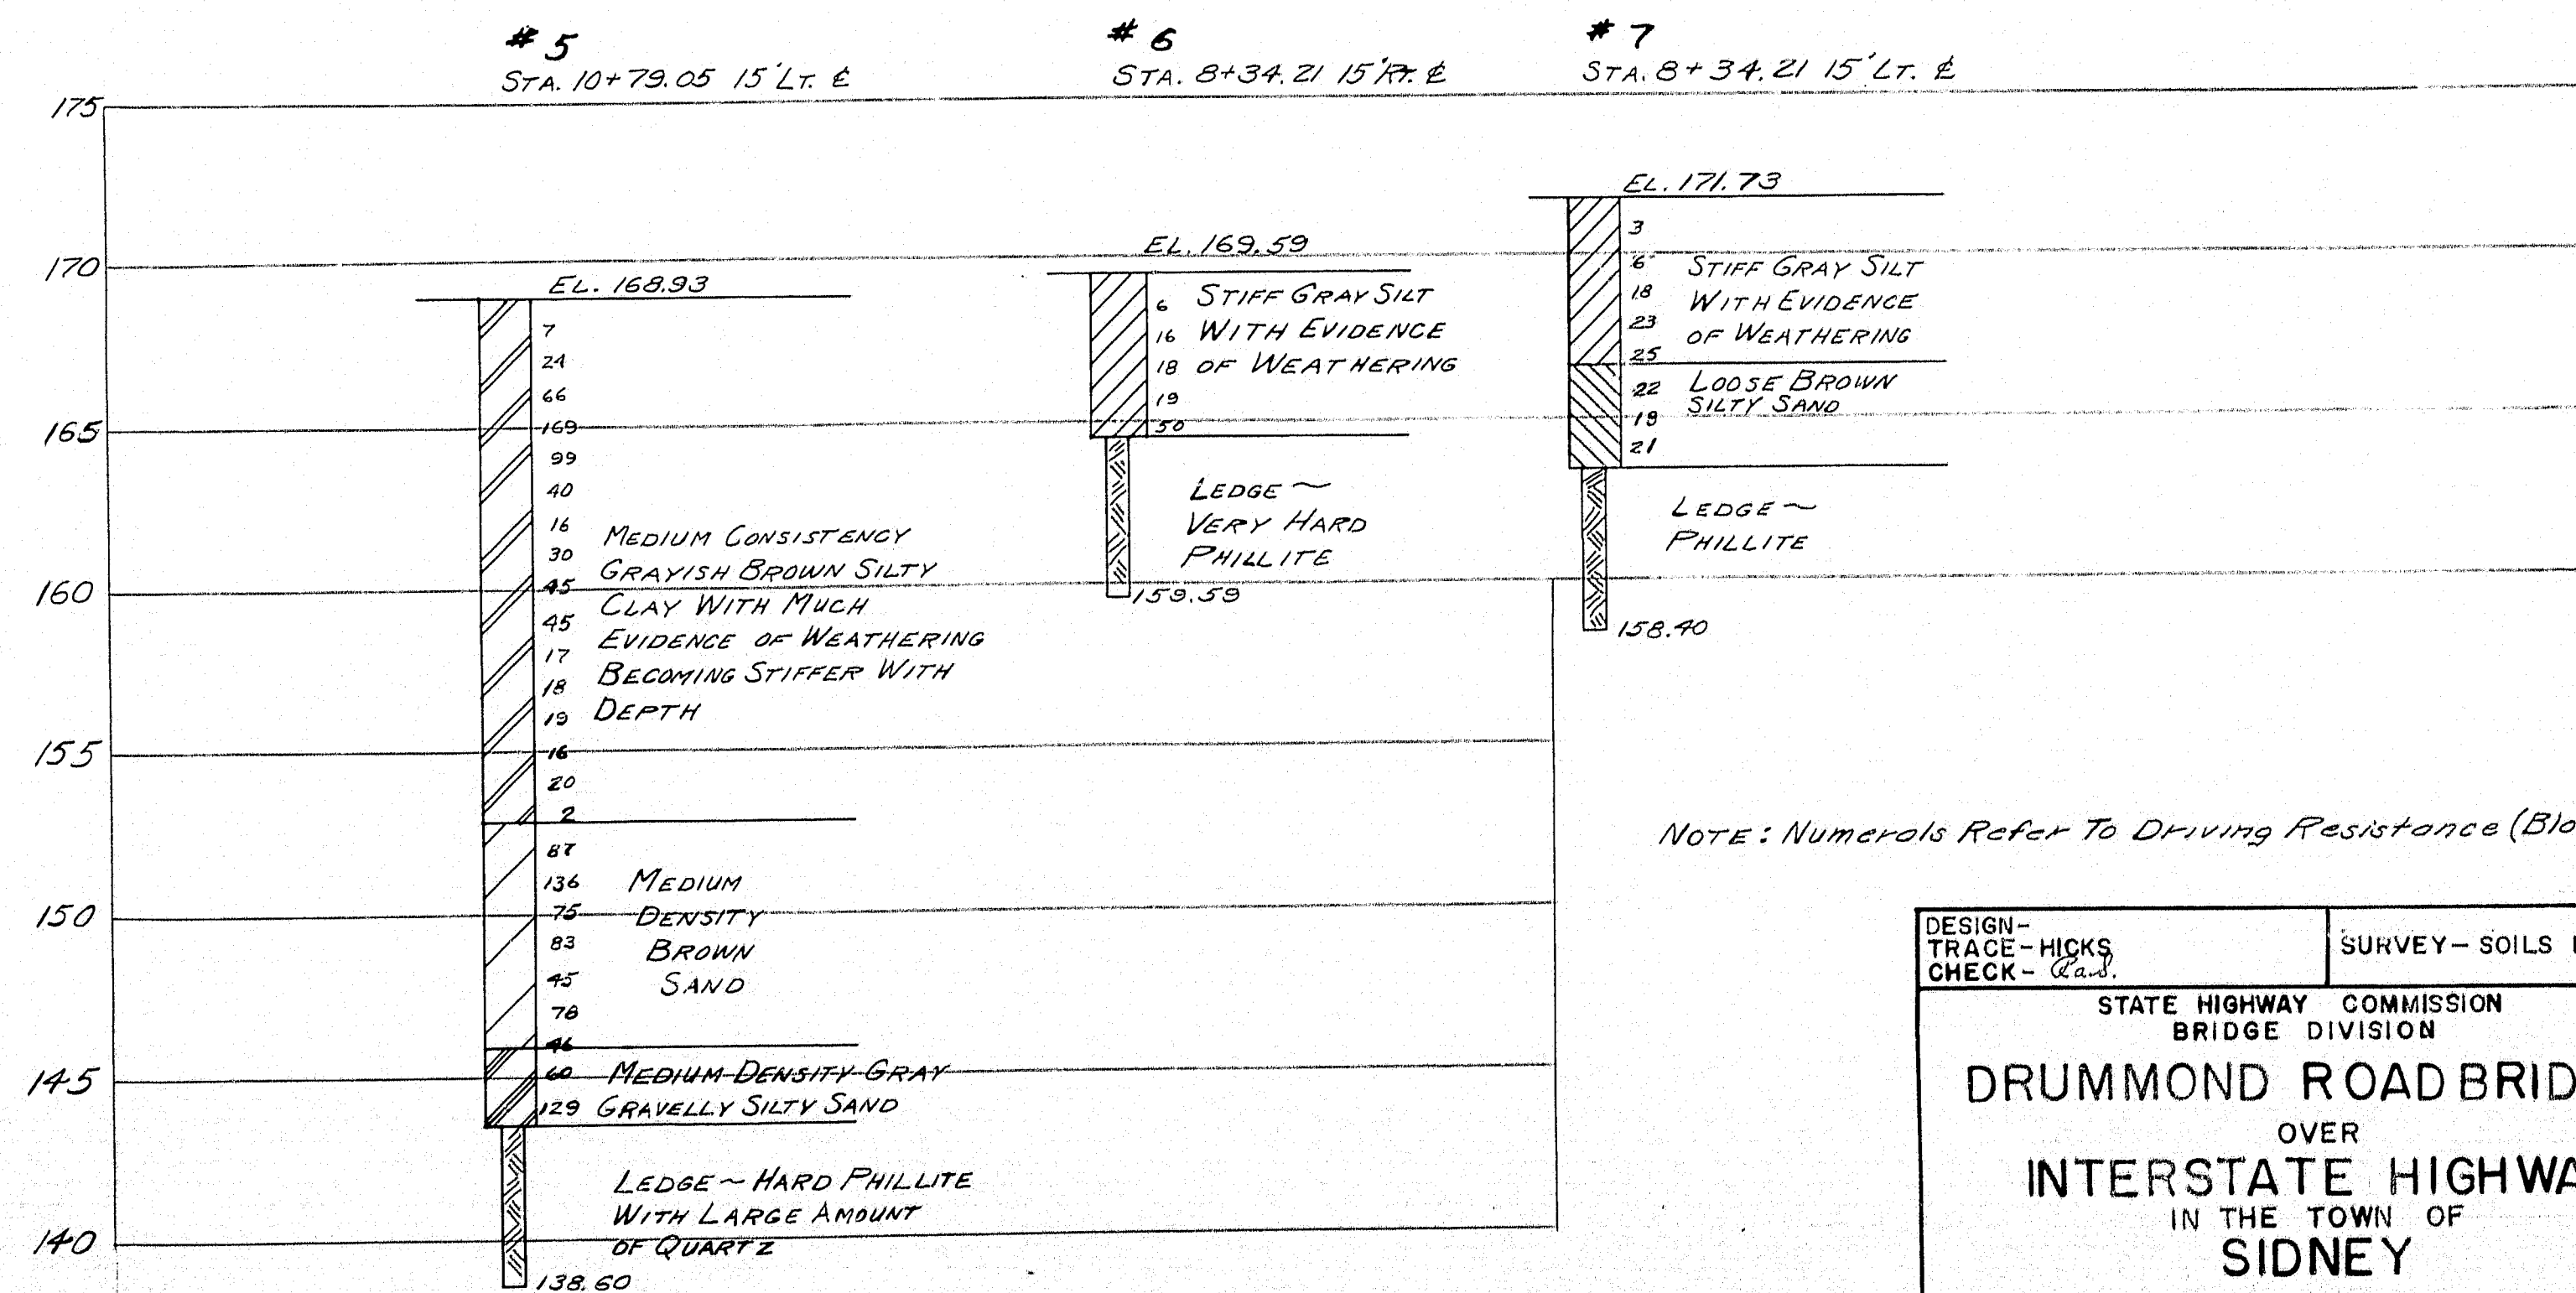 # 5
STA. 10+79.05 15' LT. ℄
# 6
STA. 8+34.21 15' RT. ℄
# 7
STA. 8+34.21 15' LT. ℄
175
170
165
160
155
150
145
140
EL. 168.93
7
24
66
169
99
40
16
30
45
45
17
18
19
16
20
2
MEDIUM CONSISTENCY
GRAYISH BROWN SILTY
CLAY WITH MUCH
EVIDENCE OF WEATHERING
BECOMING STIFFER WITH
DEPTH
87
136
75
83
45
78
46
MEDIUM
DENSITY
BROWN
SAND
60
129
MEDIUM DENSITY GRAY
GRAVELLY SILTY SAND
LEDGE ~ HARD PHILLITE
WITH LARGE AMOUNT
OF QUARTZ
138.60
EL. 169.59
6
16
18
19
50
STIFF GRAY SILT
WITH EVIDENCE
OF WEATHERING
LEDGE ~
VERY HARD
PHILLITE
159.59
EL. 171.73
3
6
18
23
25
STIFF GRAY SILT
WITH EVIDENCE
OF WEATHERING
22
18
21
LOOSE BROWN
SILTY SAND
LEDGE ~
PHILLITE
158.40
NOTE: Numerals Refer To Driving Resistance (Blo
DESIGN-
TRACE-HICKS
CHECK-
SURVEY-SOILS
STATE HIGHWAY COMMISSION
BRIDGE DIVISION
DRUMMOND ROAD BRID
OVER
INTERSTATE HIGHWA
IN THE TOWN OF
SIDNEY